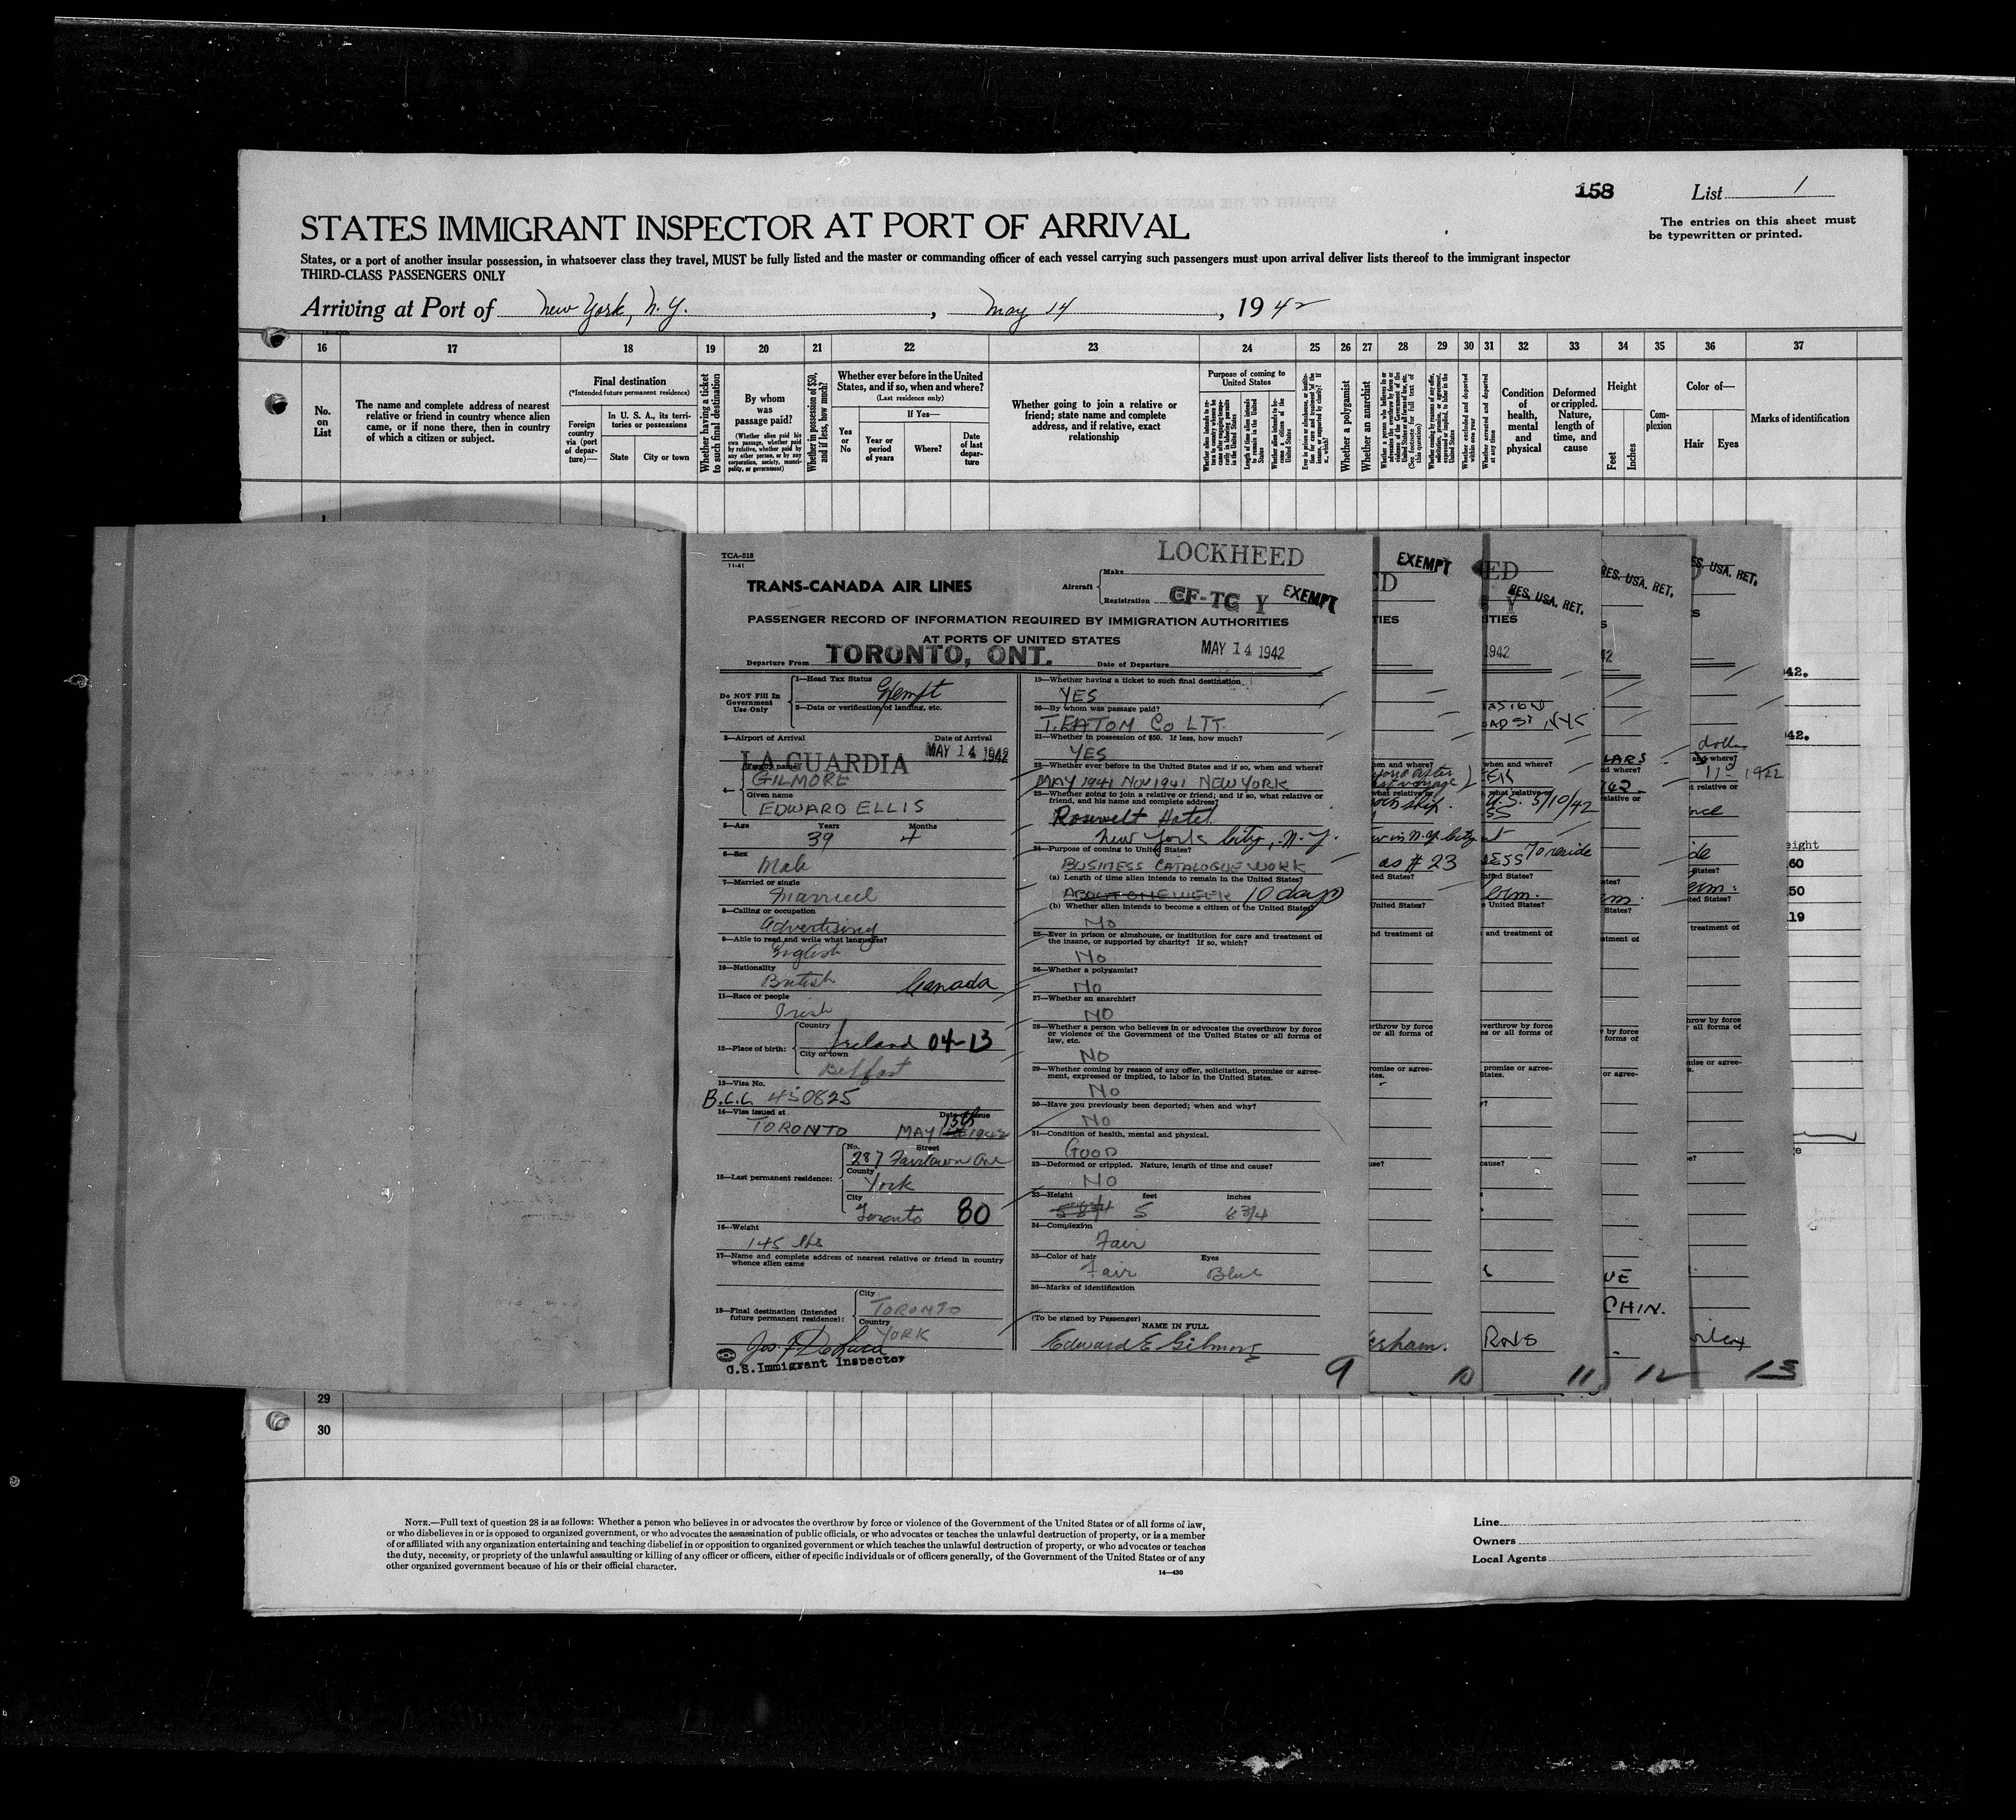 158
List 1
STATES IMMIGRANT INSPECTOR AT PORT OF ARRIVAL
The entries on this sheet must
be typewritten or printed.
States, or a port of another insular possession, in whatsoever class they travel, MUST be fully listed and the master or commanding officer of each vessel carrying such passengers must upon arrival deliver lists thereof to the immigrant inspector
THIRD-CLASS PASSENGERS ONLY
Arriving at Port of New York, N.Y. , May 14 , 1942
16 17 18 19 20 21 22 23 24 25 26 27 28 29 30 31 32 33 34 35 36 37
No.
on
List
The name and complete address of nearest
relative or friend in country whence alien
came, or if none there, then in country
of which a citizen or subject.
Final destination
(*Intended future permanent residence)
Foreign
country
via (port
of depar-
ture)—
In U. S. A., its terri-
tories or possessions
State
City or town
Whether having a ticket
to such final destination
By whom
was
passage paid?
(Whether alien paid his
own passage, whether paid
by relative, whether paid by
any other person, or by any
corporation, society, munici-
pality, or government)
Whether in possession of $50,
and if less, how much?
Whether ever before in the United
States, and if so, when and where?
(Last residence only)
Yes
or
No
If Yes—
Year or
period
of years
Where?
Date
of last
depar-
ture
Whether going to join a relative or
friend; state name and complete
address, and if relative, exact
relationship
Purpose of coming to
United States
Whether a polygamist
Whether an anarchist
Condition
of
health,
mental
and
physical
Deformed
or crippled.
Nature,
length of
time, and
cause
Height
Feet
Inches
Com-
plexion
Color of—
Hair
Eyes
Marks of identification
TCA-518
11-41
TRANS-CANADA AIR LINES
Aircraft
Make LOCKHEED
Registration CF-TC Y
EXEMPT
PASSENGER RECORD OF INFORMATION REQUIRED BY IMMIGRATION AUTHORITIES
AT PORTS OF UNITED STATES
Departure From TORONTO, ONT. Date of Departure MAY 14 1942
Do NOT Fill In
Government
Use Only
1—Head Tax Status
Exempt
2—Data or verification of landing, etc.
3—Airport of Arrival Date of Arrival
LA GUARDIA MAY 14 1942
4— Family name
GILMORE
Given name
EDWARD ELLIS
5—Age Years Months
39 4
6—Sex
Male
7—Married or single
Married
8—Calling or occupation
Advertising
9—Able to read and write what languages?
English
10—Nationality
British Canada
11—Race or people
Irish
12—Place of birth:
Country
Ireland 04-13
City or town
Belfast
13—Visa No.
B.C.C. 450825
14—Visa issued at Date of Issue
TORONTO MAY 13th 1942
15—Last permanent residence:
No. Street
287 Fairlawn Ave
County
York
City
Toronto 80
16—Weight
145 lbs
17—Name and complete address of nearest relative or friend in country
whence alien came
18—Final destination (Intended
future permanent residence):
City
TORONTO
Country
YORK
U.S. Immigrant Inspector
19—Whether having a ticket to such final destination
YES
20—By whom was passage paid?
T. EATOM CO LTT.
21—Whether in possession of $50. If less, how much?
YES
22—Whether ever before in the United States and if so, when and where?
MAY 1941 NOV 1941 NEW YORK
23—Whether going to join a relative or friend; and if so, what relative or
friend, and his name and complete address?
Rosevelt Hotel
New York City, N.Y.
24—Purpose of coming to United States?
BUSINESS CATALOGUE WORK
(a) Length of time alien intends to remain in the United States?
ABOUT ONE WEEK 10 days
(b) Whether alien intends to become a citizen of the United States?
NO
25—Ever in prison or almshouse, or institution for care and treatment of
the insane, or supported by charity? If so, which?
NO
26—Whether a polygamist?
NO
27—Whether an anarchist?
NO
28—Whether a person who believes in or advocates the overthrow by force
or violence of the Government of the United States or all forms of
law, etc.
NO
29—Whether coming by reason of any offer, solicitation, promise or agree-
ment, expressed or implied, to labor in the United States.
NO
30—Have you previously been deported; when and why?
NO
31—Condition of health, mental and physical.
GOOD
32—Deformed or crippled. Nature, length of time and cause?
NO
33—Height feet inches
5 8 3/4 5 8 3/4
34—Complexion
Fair
35—Color of hair Eyes
Fair Blue
36—Marks of identification
(To be signed by Passenger)
NAME IN FULL
Edward E Gilmore
9
EXEMPT
as # 23
10
RES. USA. RET.
1942
5/10/42
To reside
11
RES. USA. RET.
CHIN.
12
USA. RET.
1922
13
29
30
NOTE.—Full text of question 28 is as follows: Whether a person who believes in or advocates the overthrow by force or violence of the Government of the United States or of all forms of law,
or who disbelieves in or is opposed to organized government, or who advocates the assassination of public officials, or who advocates or teaches the unlawful destruction of property, or is a member
of or affiliated with any organization entertaining and teaching disbelief in or opposition to organized government or which teaches the unlawful destruction of property, or who advocates or teaches
the duty, necessity, or propriety of the unlawful assaulting or killing of any officer or officers, either of specific individuals or of officers generally, of the Government of the United States or of any
other organized government because of his or their official character.
14—430
Line
Owners
Local Agents